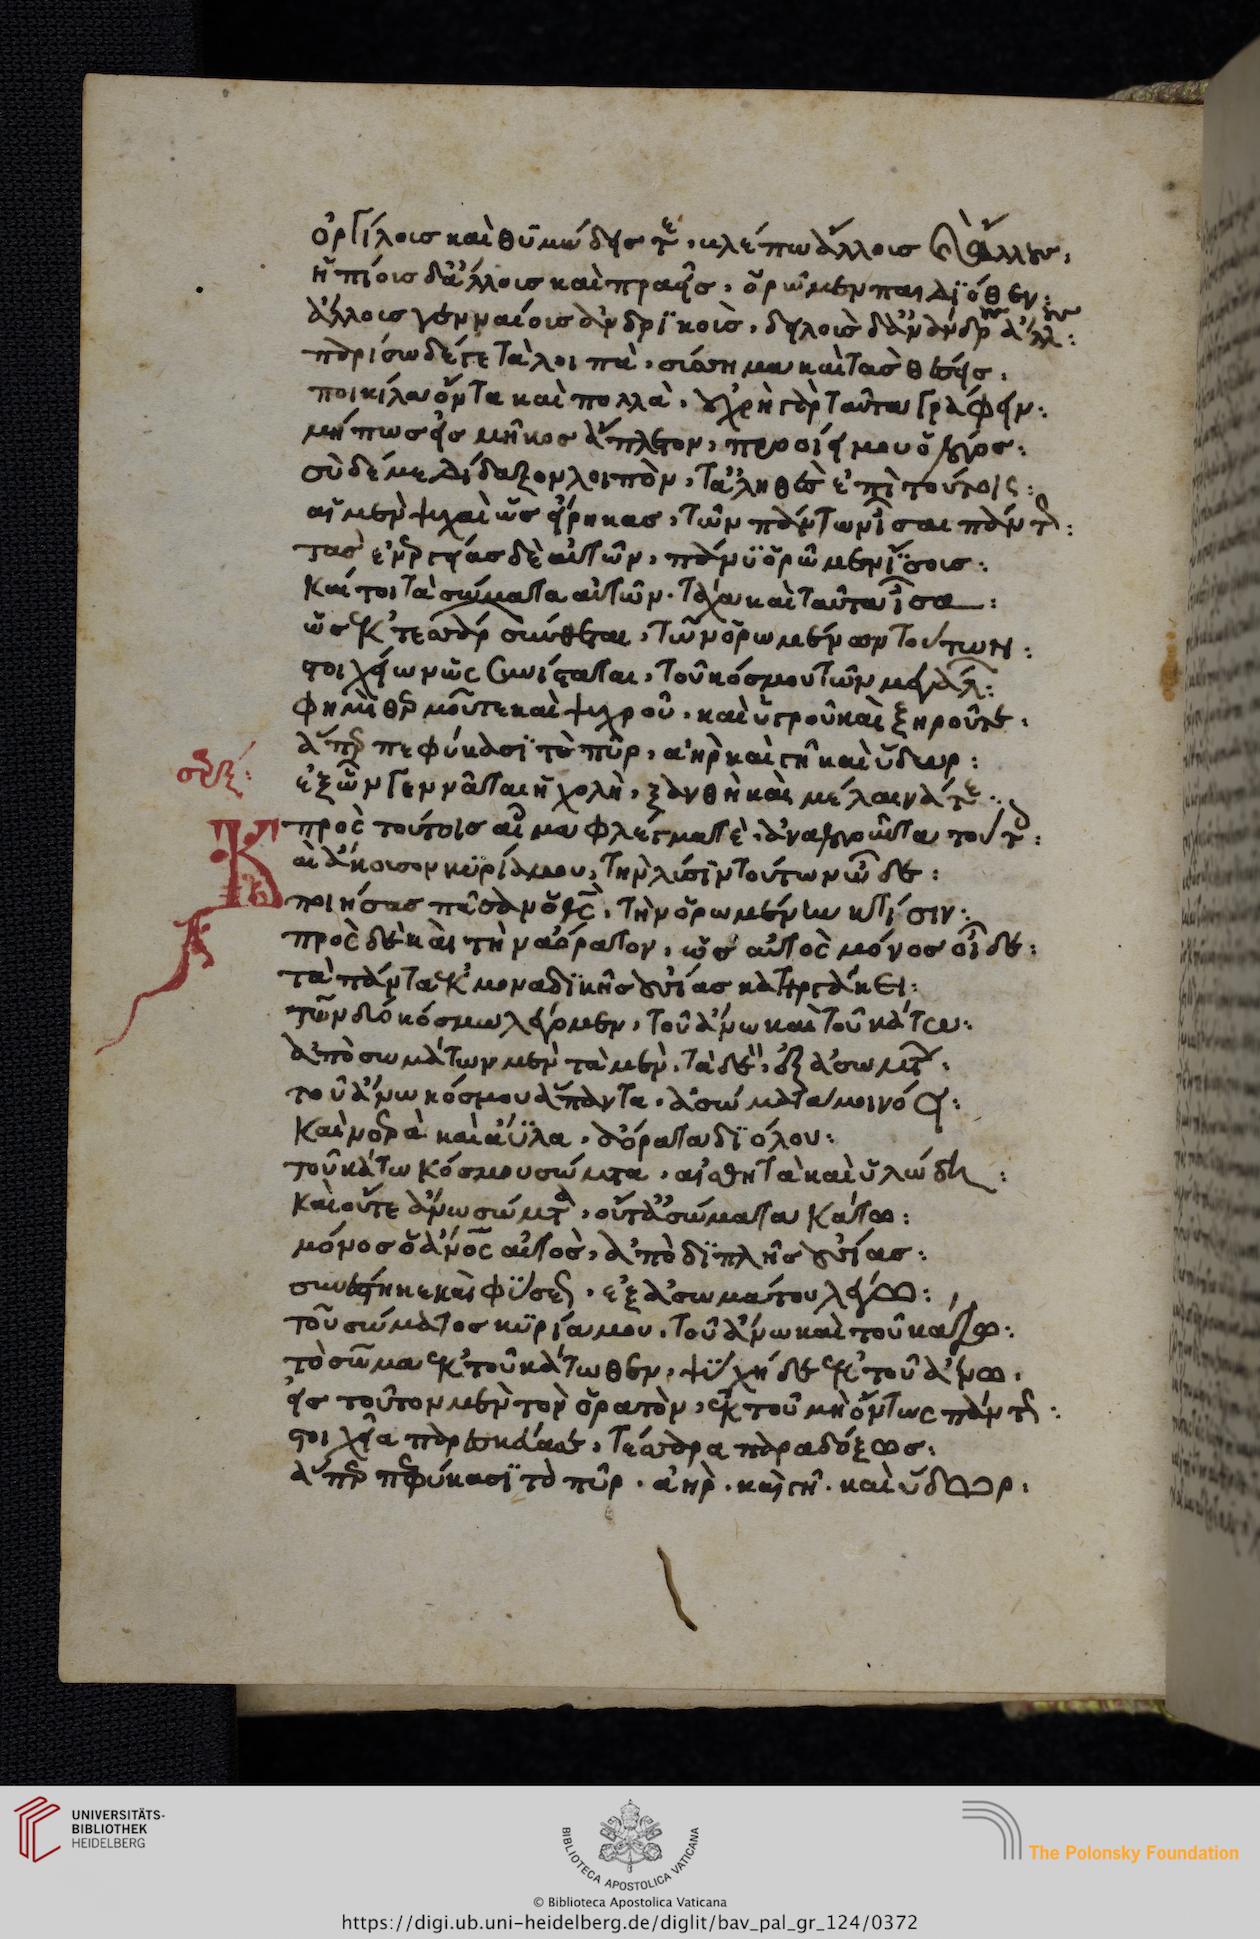 ὀργίλοις καὶ θυμώδεις τε, βλέπω ἄλλοις
ἠπίοις δ' ἄλλοις καὶ πραεῖς, ὁρῶμεν παιδιόθεν:
ἄλλοις γενναίοις ἀνδρικοὶς, δηλοὶς δ' ἄνανδρ
παρίσω δέγε τἀλοιπὰ,
ποικίλα ὄντα καὶ πολλὰ, οὐ χρὴ γὰρ ταῦτα γράφειν:
μήπως εἰς μῆκος ἄπλετον, προσίει μου ὁ λόγος:
σὺ δέ με δίδαξον λοιπὸν, τἀληθὲς ἐπὶ τούτοις:
αἱ μὲν ψυχαὶ ὡς εἴρηκας, τῶν πάντων ἶσαι πάντ:
τὰς ἐνεργείας δὲ αὐτῶν, πάνυ ὁρῶμεν ἴσοις:
καίτοι τὰ σώματα αὐτῶν. τάχα καὶ ταῦτα ἶσα:
ὡς ἐκ τεσσάρ σύγκειται, τῶν ὁρωμένων τούτων:
στοιχείων ὡς συνίσταται, τοῦ κόσμου τῶν μεγάλ:
φημὶ θερμοῦ τε καὶ ψυχροῦ, καὶ ὑγροῦ καὶ ξηροῦ τε:
ἅπερ πεφύκασι τὸ πῦρ, ἀὴρ καὶ γῆ καὶ ὕδωρ:
ἐξ ὧν γεννᾶται ἡ χολὴ, ξανθὴ καὶ μέλαινά τε:
πρὸς τούτοις αἷμα φλέγμα τὲ,
Καὶ ἄκουσον κυρία μου, τὴν λύσιν τούτων ὧδε:
ποιήσας πᾶσαν ὁ θς, τὴν ὁρωμένην κτίσιν:
πρὸς δὲ καὶ τὴν ἀόρατον, ὡς αὐτὸς μόνος οἶδε:
τὰ πάντα ἐκ μοναδικῆς οὐσίας κατηργάκει:
τῶν δύο κόσμων λέγομεν, τοῦ ἄνω καὶ τοῦ κάτω:
ἀπὸ σωμάτων μὲν τὰ μὲν, τὰ δὲ, ἐξ ἀσωμάτ:
τοῦ ἄνω κόσμου ἅπαντα, ἀσώματα μοι νόει:
καὶ νοερὰ καὶ ἄϋλα, ἀόρατα δι ὅλου:
τοῦ κάτω κόσμου σώματα, αἰσθητὰ καὶ ὑλώδη:
καὶ οὔτε ἄνω σώματα, οὔτ' ἀσώματα κάτω:
μόνος ὁ ἄνος αὐτὸς, ἀπὸ διπλῆς οὐσίας:
συνέστηκε καὶ φύσε, ἐξ ἀσωμάτου λέγω:
τοῦ σώματος κυρία μου, τοῦ ἄνω καὶ τοῦ κάτω:
τὸ σῶμα ἐκ τοῦ κάτωθεν, ψυχὴ δὲ ἐκ τοῦ ἄνω,
εἰς τοῦτον μὲν τὸν ὁρατὸν, ἐκ τοῦ μὴ ὄντως πάντ:
στοιχεῖα τέσσαρα παραδόξως:
ἅπερ πεφύκασι τὸ πῦρ. ἀὴρ. καὶ γῆ. καὶ ὕδωρ:
UNIVERSITÄTS-
BIBLIOTHEK
HEIDELBERG
BIBLIOTECA APOSTOLICA VATICANA
The Polonsky Foundation
© Biblioteca Apostolica Vaticana
https://digi.ub.uni-heidelberg.de/diglit/bav_pal_gr_124/0372